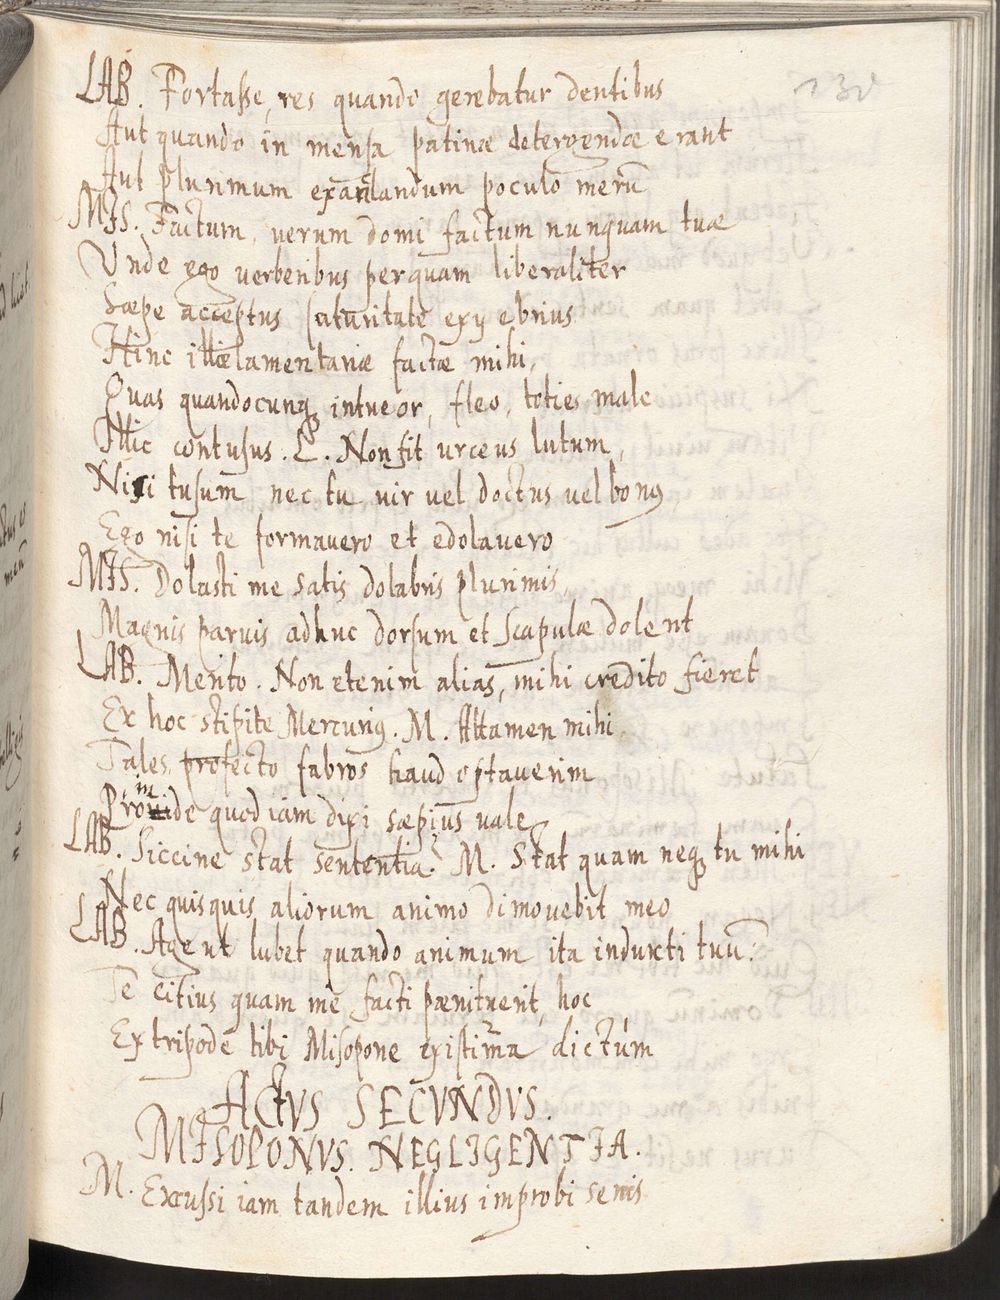 130
LAB. Fortasse, res quando gerebatur dentibus
Aut quando in mensa patinæ detergendæ erant
Aut plurimum exantlandum poculo merū
MIS. Factum, verum domi factum nunquam tuæ
Unde ego verberibus perquam liberaliter
Sæpe acceptus saturitate exij ebrius
Hinc illæ lamentariæ factæ mihi,
Quas quandocunq, intueor, fleo, toties male
Illic contusus. L. Non fit urceus lutum,
Nisi tusum nec tu vir vel doctus vel bonus
Ego nisi te formavero et edolavero
MIS. Dolasti me satis dolabris plurimis
Magnis parvis adhuc dorsum et scapulæ dolent
LAB. Merito. Non etenim alias, mihi credito fieret
Ex hoc stipite Mercurius. M. Attamen mihi
Tales profecto fabros haud optaverim
Proinde quod iam dixi sæpius vale
LAB. Siccine stat sententia? M. Stat quam neq, tu mihi
Nec quisquis aliorum animo dimovebit meo
LAB. Age ut lubet quando animum ita induxti tuū?
Te citius quam me facti pænituerit, hoc
Ex tripode tibi Misopone existima dictum
ACTVS SECVNDVS.
MISOPONVS. NEGLIGENTIA.
M. Excussi iam tandem illius improbi senis